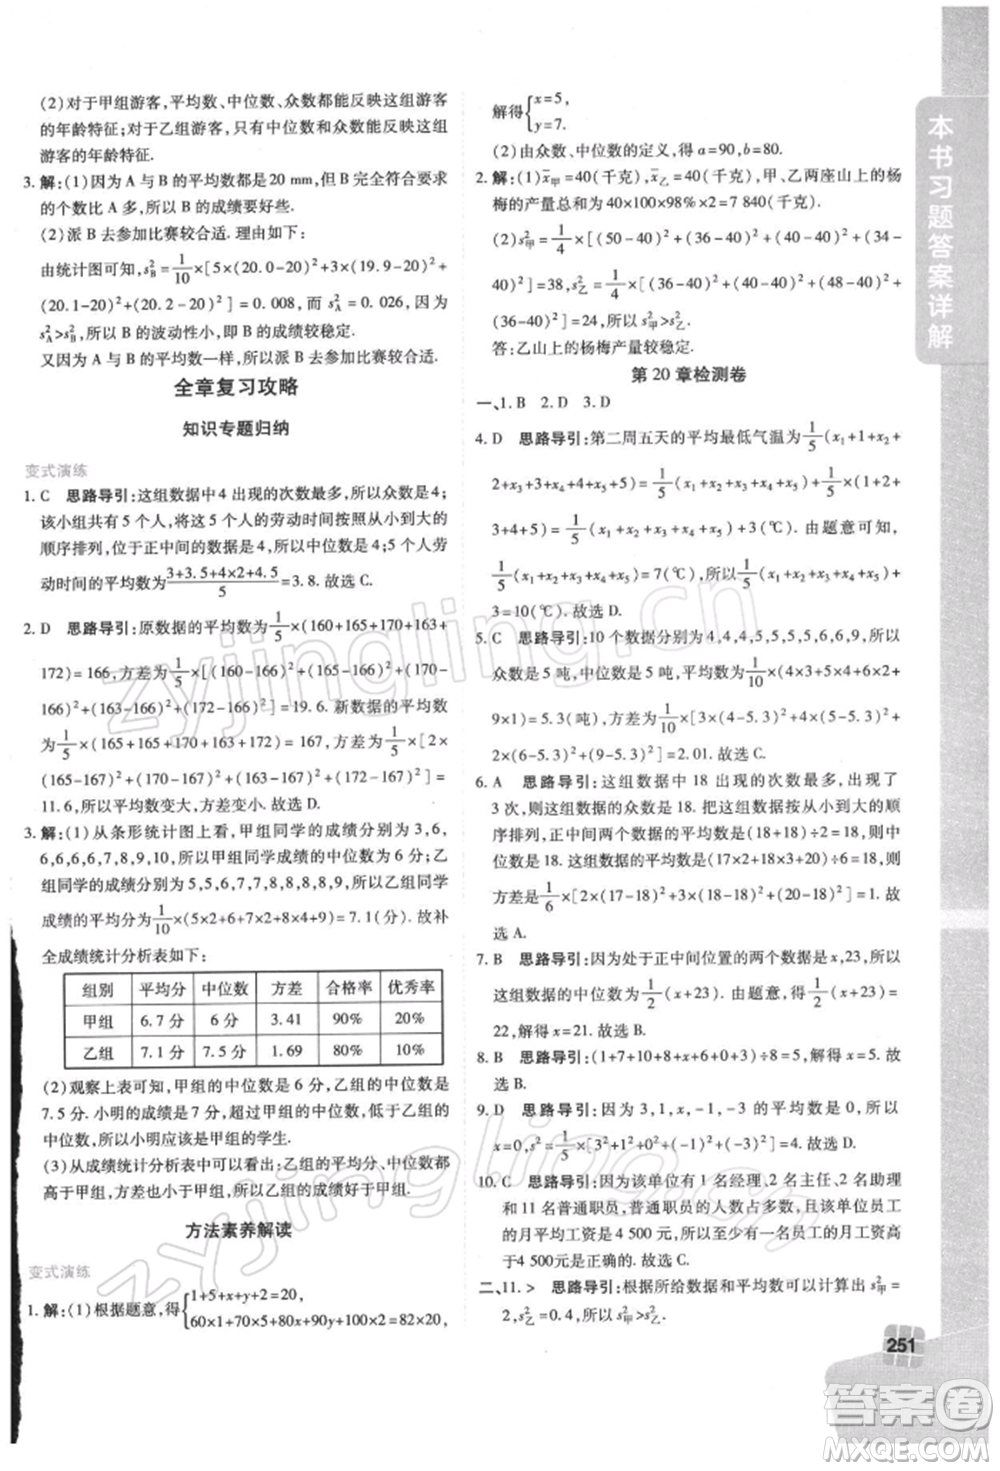 (2)对于甲组游客,平均数、中位数、众数都能反映这组游客
的年龄特征;对于乙组游客,只有中位数和众数能反映这组
游客的年龄特征.
3. 解:(1)因为 A 与 B 的平均数都是 20 mm,但 B 完全符合要求
的个数比 A 多,所以 B 的成绩要好些.
(2)派 B 去参加比赛较合适. 理由如下:
由统计图可知,s²_B=1/10×[5×(20.0-20)²+3×(19.9-20)²+
(20.1-20)²+(20.2-20)²]=0.008,而 s²_A=0.026,所以
s²_A>s²_B,所以 B 的波动性小,即 B 的成绩较稳定.
又因为 A 与 B 的平均数一样,所以派 B 去参加比赛较合适.
全章复习攻略
知识专题归纳
变式演练
1. C 思路导引:这组数据中 4 出现的次数最多,所以众数是 4;
该小组共有 5 个人,将这 5 个人的劳动时间按照从小到大的
顺序排列,位于正中间的数据是 4,所以中位数是 4;5 个人劳
动时间的平均数为(3+3.5+4×2+4.5)/5=3.8. 故选 C.
2. D 思路导引:原数据的平均数为1/5×(160+165+170+163+
172)=166,方差为1/5×[(160-166)²+(165-166)²+(170-
166)²+(163-166)²+(172-166)²]=19.6. 新数据的平均数
为1/5×(165+165+170+163+172)=167,方差为1/5×[2×
(165-167)²+(170-167)²+(163-167)²+(172-167)²]=
11.6,所以平均数变大,方差变小. 故选 D.
3. 解:(1)从条形统计图上看,甲组同学的成绩分别为 3,6,
6,6,6,6,7,8,9,10,所以甲组同学成绩的中位数为 6 分;乙
组同学的成绩分别为 5,5,6,7,7,8,8,8,8,9,所以乙组同学
成绩的平均分为1/10×(5×2+6+7×2+8×4+9)=7.1(分). 故补
全成绩统计分析表如下:
组别 平均分 中位数 方差 合格率 优秀率
甲组 6.7 分 6 分 3.41 90% 20%
乙组 7.1 分 7.5 分 1.69 80% 10%
(2)观察上表可知,甲组的中位数是 6 分,乙组的中位数是
7.5 分. 小明的成绩是 7 分,超过甲组的中位数,低于乙组的
中位数,所以小明应该是甲组的学生.
(3)从成绩统计分析表中可以看出:乙组的平均分、中位数都
高于甲组,方差小于甲组,所以乙组的成绩好于甲组.
方法素养解读
变式演练
1. 解:(1)根据题意,得{1+5+x+y+2=20,
60×1+70×5+80x+90y+100×2=82×20,
解得{x=5,
y=7.
(2)由众数、中位数的定义,得 a=90,b=80.
2. 解:(1)x̄甲=40(千克),x̄乙=40(千克),甲、乙两座山上的杨
梅的产量总和为 40×100×98%×2=7 840(千克).
(2)s²甲=1/4×[(50-40)²+(36-40)²+(40-40)²+(34-
40)²]=38,s²乙=1/4×[(36-40)²+(40-40)²+(48-40)²+
(36-40)²]=24,所以 s²甲>s²乙.
答:乙山上的杨梅产量较稳定.
第 20 章检测卷
一、1. B 2. D 3. D
4. D 思路导引:第二周五天的平均最低气温为1/5(x₁+1+x₂+
2+x₃+3+x₄+4+x₅+5)=1/5(x₁+x₂+x₃+x₄+x₅)+1/5(1+2+
3+4+5)=1/5(x₁+x₂+x₃+x₄+x₅)+3(℃). 由题意可知,
1/5(x₁+x₂+x₃+x₄+x₅)=7(℃),所以1/5(x₁+x₂+x₃+x₄+x₅)+
3=10(℃). 故选 D.
5. C 思路导引:10 个数据分别为 4,4,4,5,5,5,5,6,6,9,所以
众数是 5 吨,中位数是 5 吨,平均数是1/10×(4×3+5×4+6×2+
9×1)=5.3(吨),方差是1/10×[3×(4-5.3)²+4×(5-5.3)²+
2×(6-5.3)²+(9-5.3)²]=2.01. 故选 C.
6. A 思路导引:这组数据中 18 出现的次数最多,出现了
3 次,则这组数据的众数是 18. 把这组数据按从小到大的顺
序排列,正中间两个数据的平均数是(18+18)÷2=18,则中
位数是 18. 这组数据的平均数是(17×2+18×3+20)÷6=18,则
方差是1/6×[2×(17-18)²+3×(18-18)²+(20-18)²]=1. 故
选 A.
7. B 思路导引:因为处于正中间位置的两个数为 x,23,所以
这组数据的中位数为1/2(x+23). 由题意,得1/2(x+23)=
22,解得 x=21. 故选 B.
8. B 思路导引:(1+7+10+8+4)÷(1+3+5+4+2)=2(本). 故
选 B.
9. D 思路导引:因为 3,1,x,-1,-3 的平均数是 0,所以
x=0,s²=1/5×[3²+1²+0²+(-1)²+(-3)²]=4. 故选 D.
10. C 思路导引:因为该单位有 1 名经理、2 名主任、2 名助理
和 11 名普通职员,普通职员的人数占多数,所以该单位员工
的月平均工资是 4 500 元,所以该单位所有员工的月工资高
于 4 500元是正确的. 故选 C.
二、11. > 思路导引:根据所给数据和平均数可以计算出 s²甲
=2,s²乙=0.4,所以 s²甲>s²乙.
本书习题答案详解
251
zyjingling.cn
zyjingling.cn
答案圈
MXQE.COM